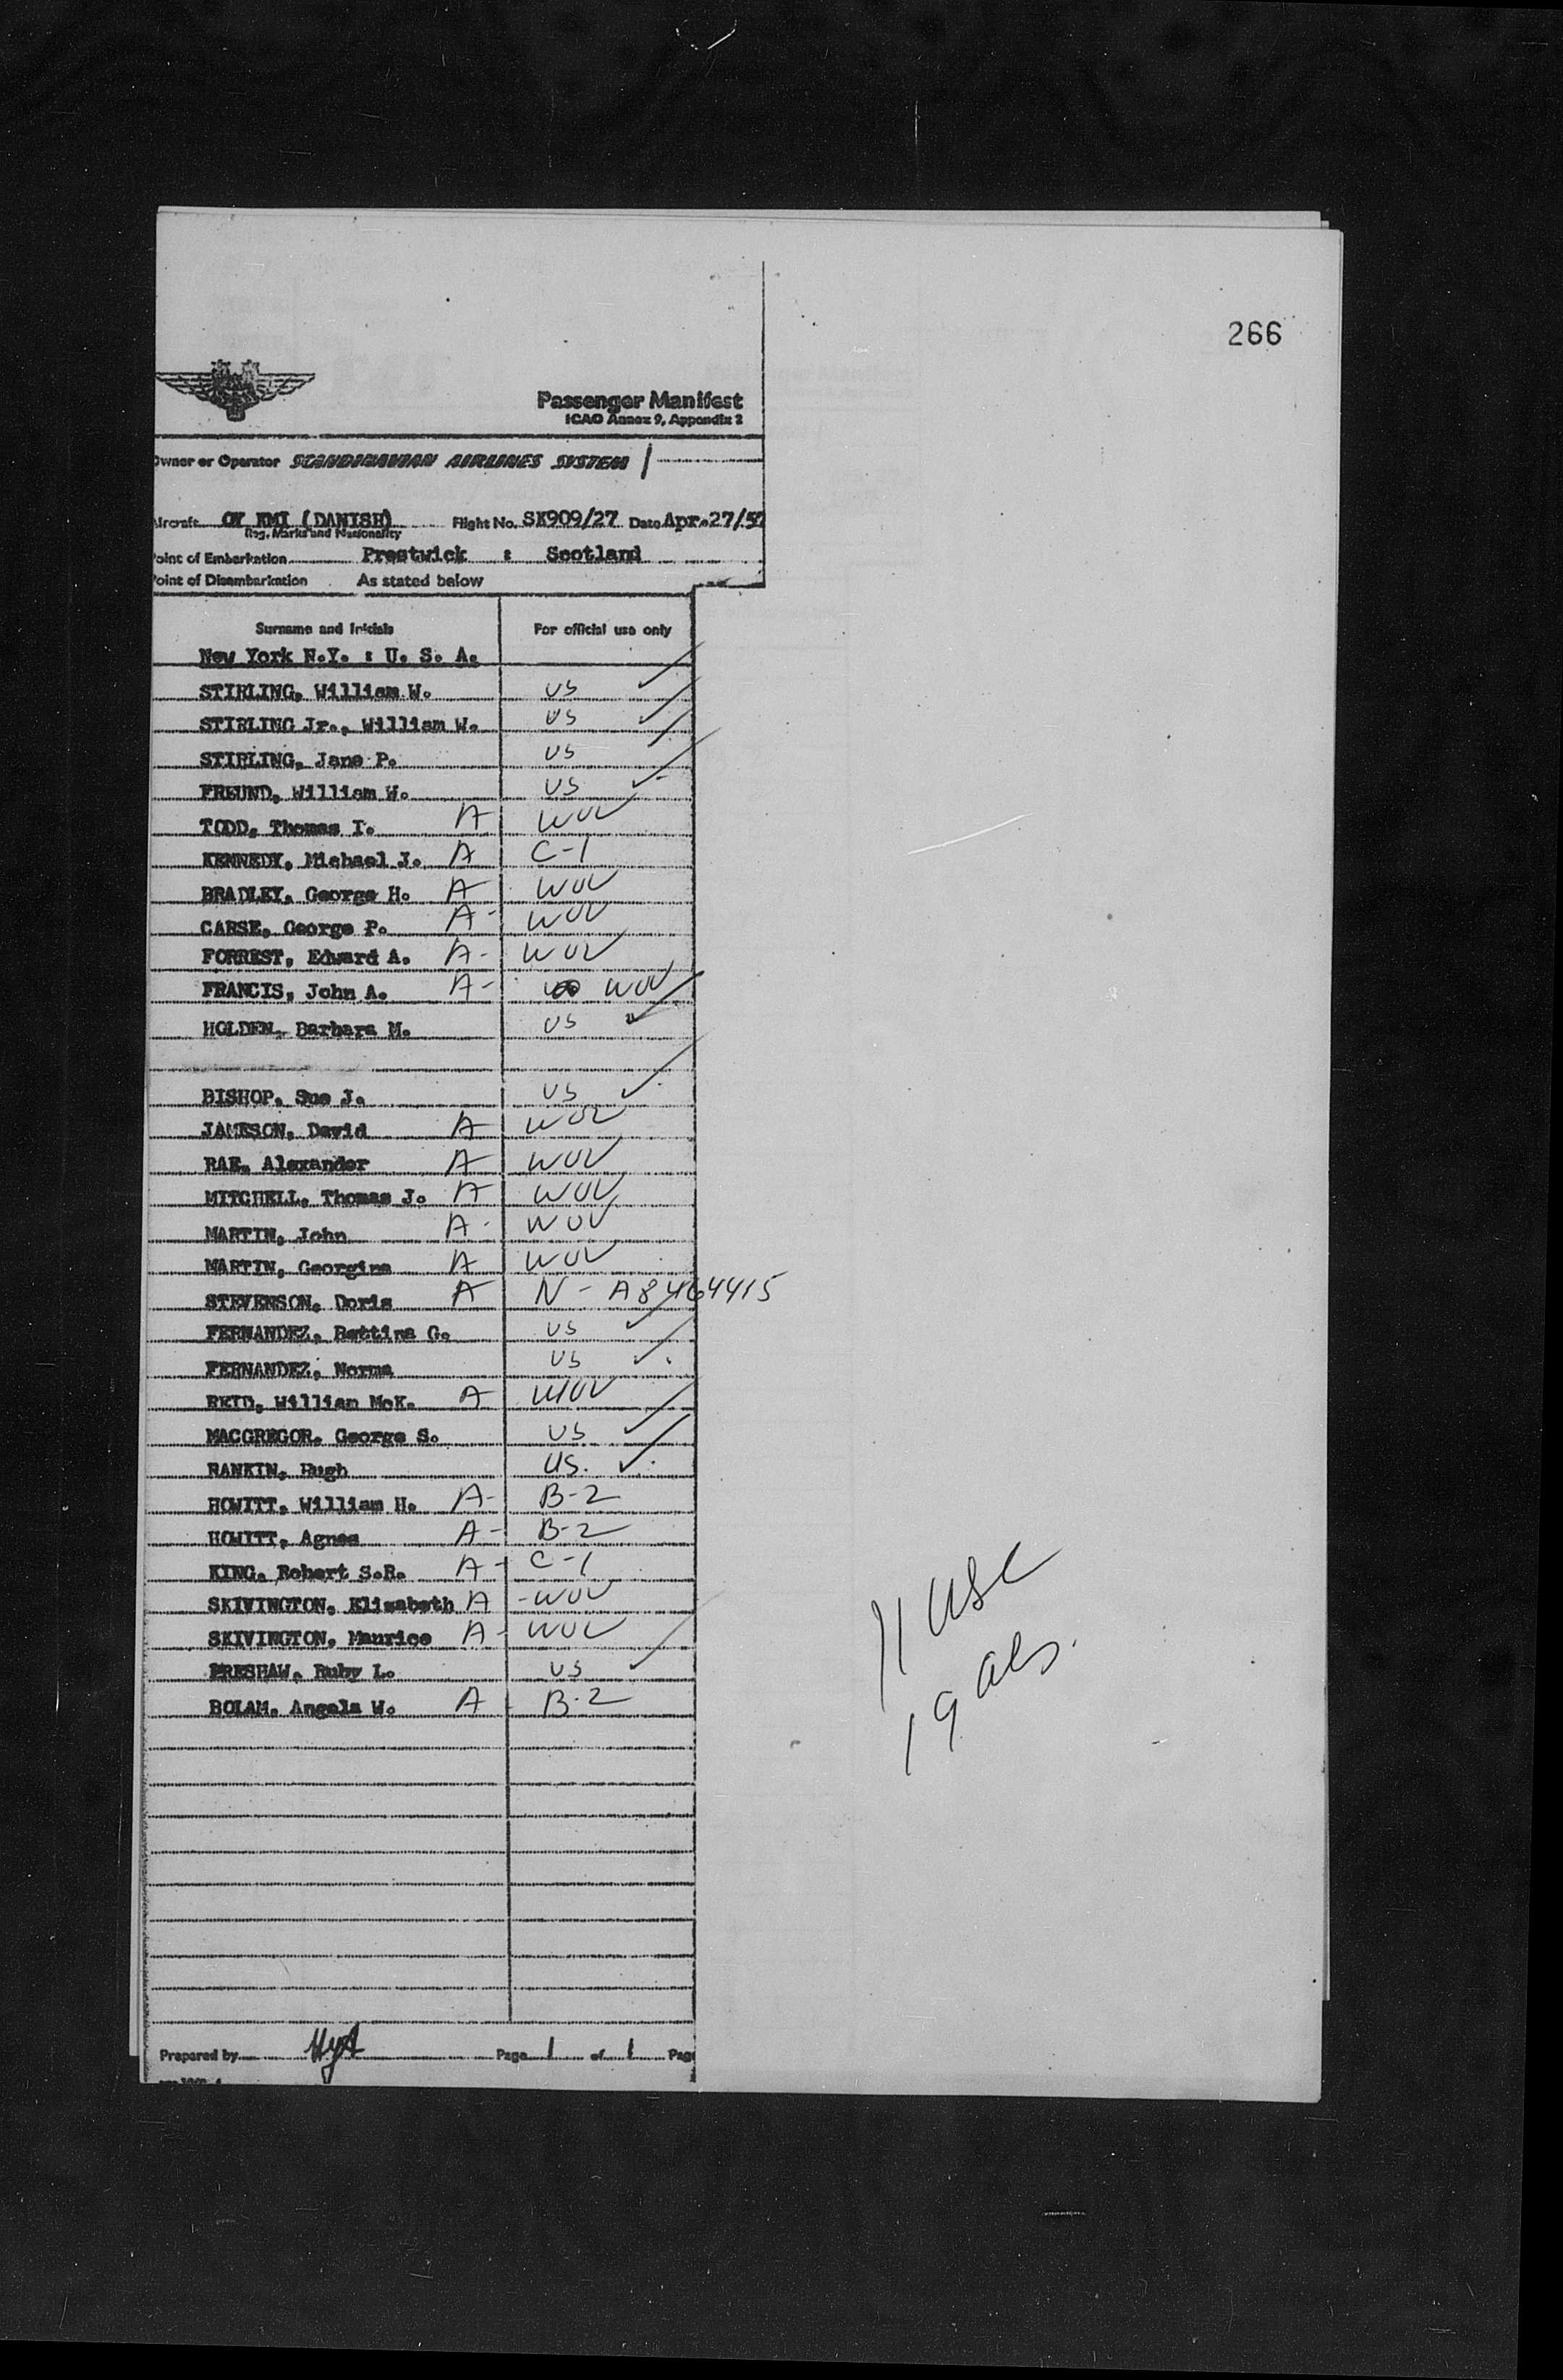 266
Passenger Manifest
ICAO Annex 9, Appendix 2
Owner or Operator SCANDINAVIAN AIRLINES SYSTEM
Aircraft OY KMI (DANISH) Flight No. SK909/27 Date Apr.27/57
Reg. Marks and Nationality
Point of Embarkation Prestwick : Scotland
Point of Disembarkation As stated below
Surname and Initials For official use only
New York N.Y. : U. S. A.
STIRLING, William W. US
STIRLING Jr., William W. US
STIRLING, Jane P. US
FREUND, William W. US
TODD, Thomas I. A WOV
KENNEDY, Michael J. A C-1
BRADLEY, George H. A WOV
CARSE, George P. A- WOV
FORREST, Edward A. A- WOV
FRANCIS, John A. A- WOV
HOLDEN, Barbara M. US
BISHOP, Sue J. US
JAMESON, David A WOV
RAE, Alexander A WOV
MITCHELL, Thomas J. A WOV
MARTIN, John A- WOV
MARTIN, Georgina A WOV
STEVENSON, Doris A N - A8464415
FERNANDEZ, Bettina G. US
FERNANDEZ, Norma US
REID, William McK. A WOV
MACGREGOR, George S. US
RANKIN, Hugh US.
HOWITT, William H. A- B-2
HOWITT, Agnes A- B-2
KING, Robert S.R. A- C-1
SKIVINGTON, Elizabeth A -WOV
SKIVINGTON, Maurice A- WOV
PRESHAW, Ruby L. US
BOLAM, Angela W. A B-2
11 USC
19 als.
Prepared by Page 1 of 1 Page